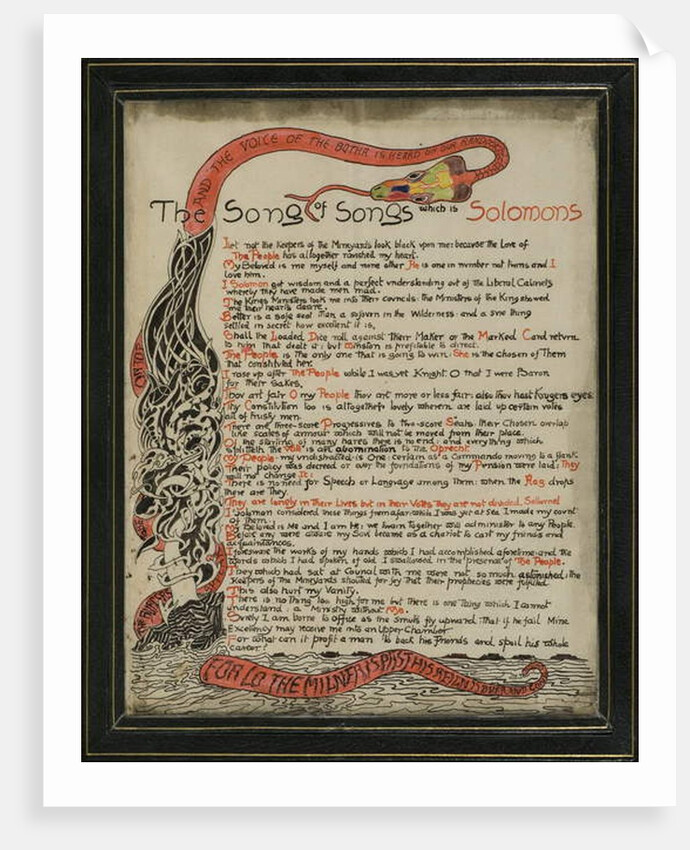 AND THE VOICE OF THE BOTHA IS HEARD ON OUR RAND
The Song of Songs which is Solomons
Let not the Keepers of the Mineyards look black upon me: because the love of
The People has altogether ravished my heart.
My Beloved is me myself and none other He is one in number not twins and I
love him.
I Solomon got wisdom and a perfect understanding out of the Liberal Cabinets
whereby they have made men mad.
The Kings Ministers took me into their councils: the Ministers of the King showed
me their hearts desire.
Better is a safe seat than a sojourn in the Wilderness: and a sure thing
settled in secret how excellent it is.
Shall the Loaded Dice roll against their Maker or the Marked Card return
to him that dealt it: but is profitable to direct.
The People is the only one that is going to win: She is the chosen of Them
that constituted her.
I rose up after The People while I was yet Knight: O that I were Baron
for their sakes.
Thou art fair O my People thou art more or less fair: also thou hast Krugers eyes.
Thy Constitution too is altogether lovely wherein are laid up certain voles
all of trusty men.
There are three-score Progressives to two-score Seats: their Chosen overlap
like scales of armour which will not be moved from their place.
Of the starting of many hares there is no end: and everything which
splitteth the Vote is an abomination to the Oprecht.
My People my undistracted is One: certain as a Commando moving to a flank.
Their policy was decreed or ever the foundations of my Pension were laid: They
will not change It:
There is no need for Speech or Language among Them: when the Flag drops
there are They.
They are lovely in their Lives but in their Votes they are not divided.
I Solomon considered these things from afar: while I was yet at Sea I made my count
of them.
My Beloved is Me and I am He: we twain together will administer to any People.
Before any were aware my Soul became as a chariot to cart my friends and
acquaintances.
I foresaw the works of my hands which I had accomplished aforetime and the
words which I had spoken of old I swallowed in the presence of The People.
They which had sat at Council with me were not so much astonished: the
Keepers of the Mineyards shouted for joy that their prophecies were fulfilled
This also hurt my Vanity.
There is no thing too high for me but there is one Thing which I cannot
understand: a Ministry without Me.
Surely I am borne to office as the smuts fly upward: that if he fail Mine
Excellency may receive me into an Upper Chamber
For what can it profit a man to back his Friends and spoil his whole
career?
FOR LO THE MILNER IS PAST HIS REIGN IS OVER AND